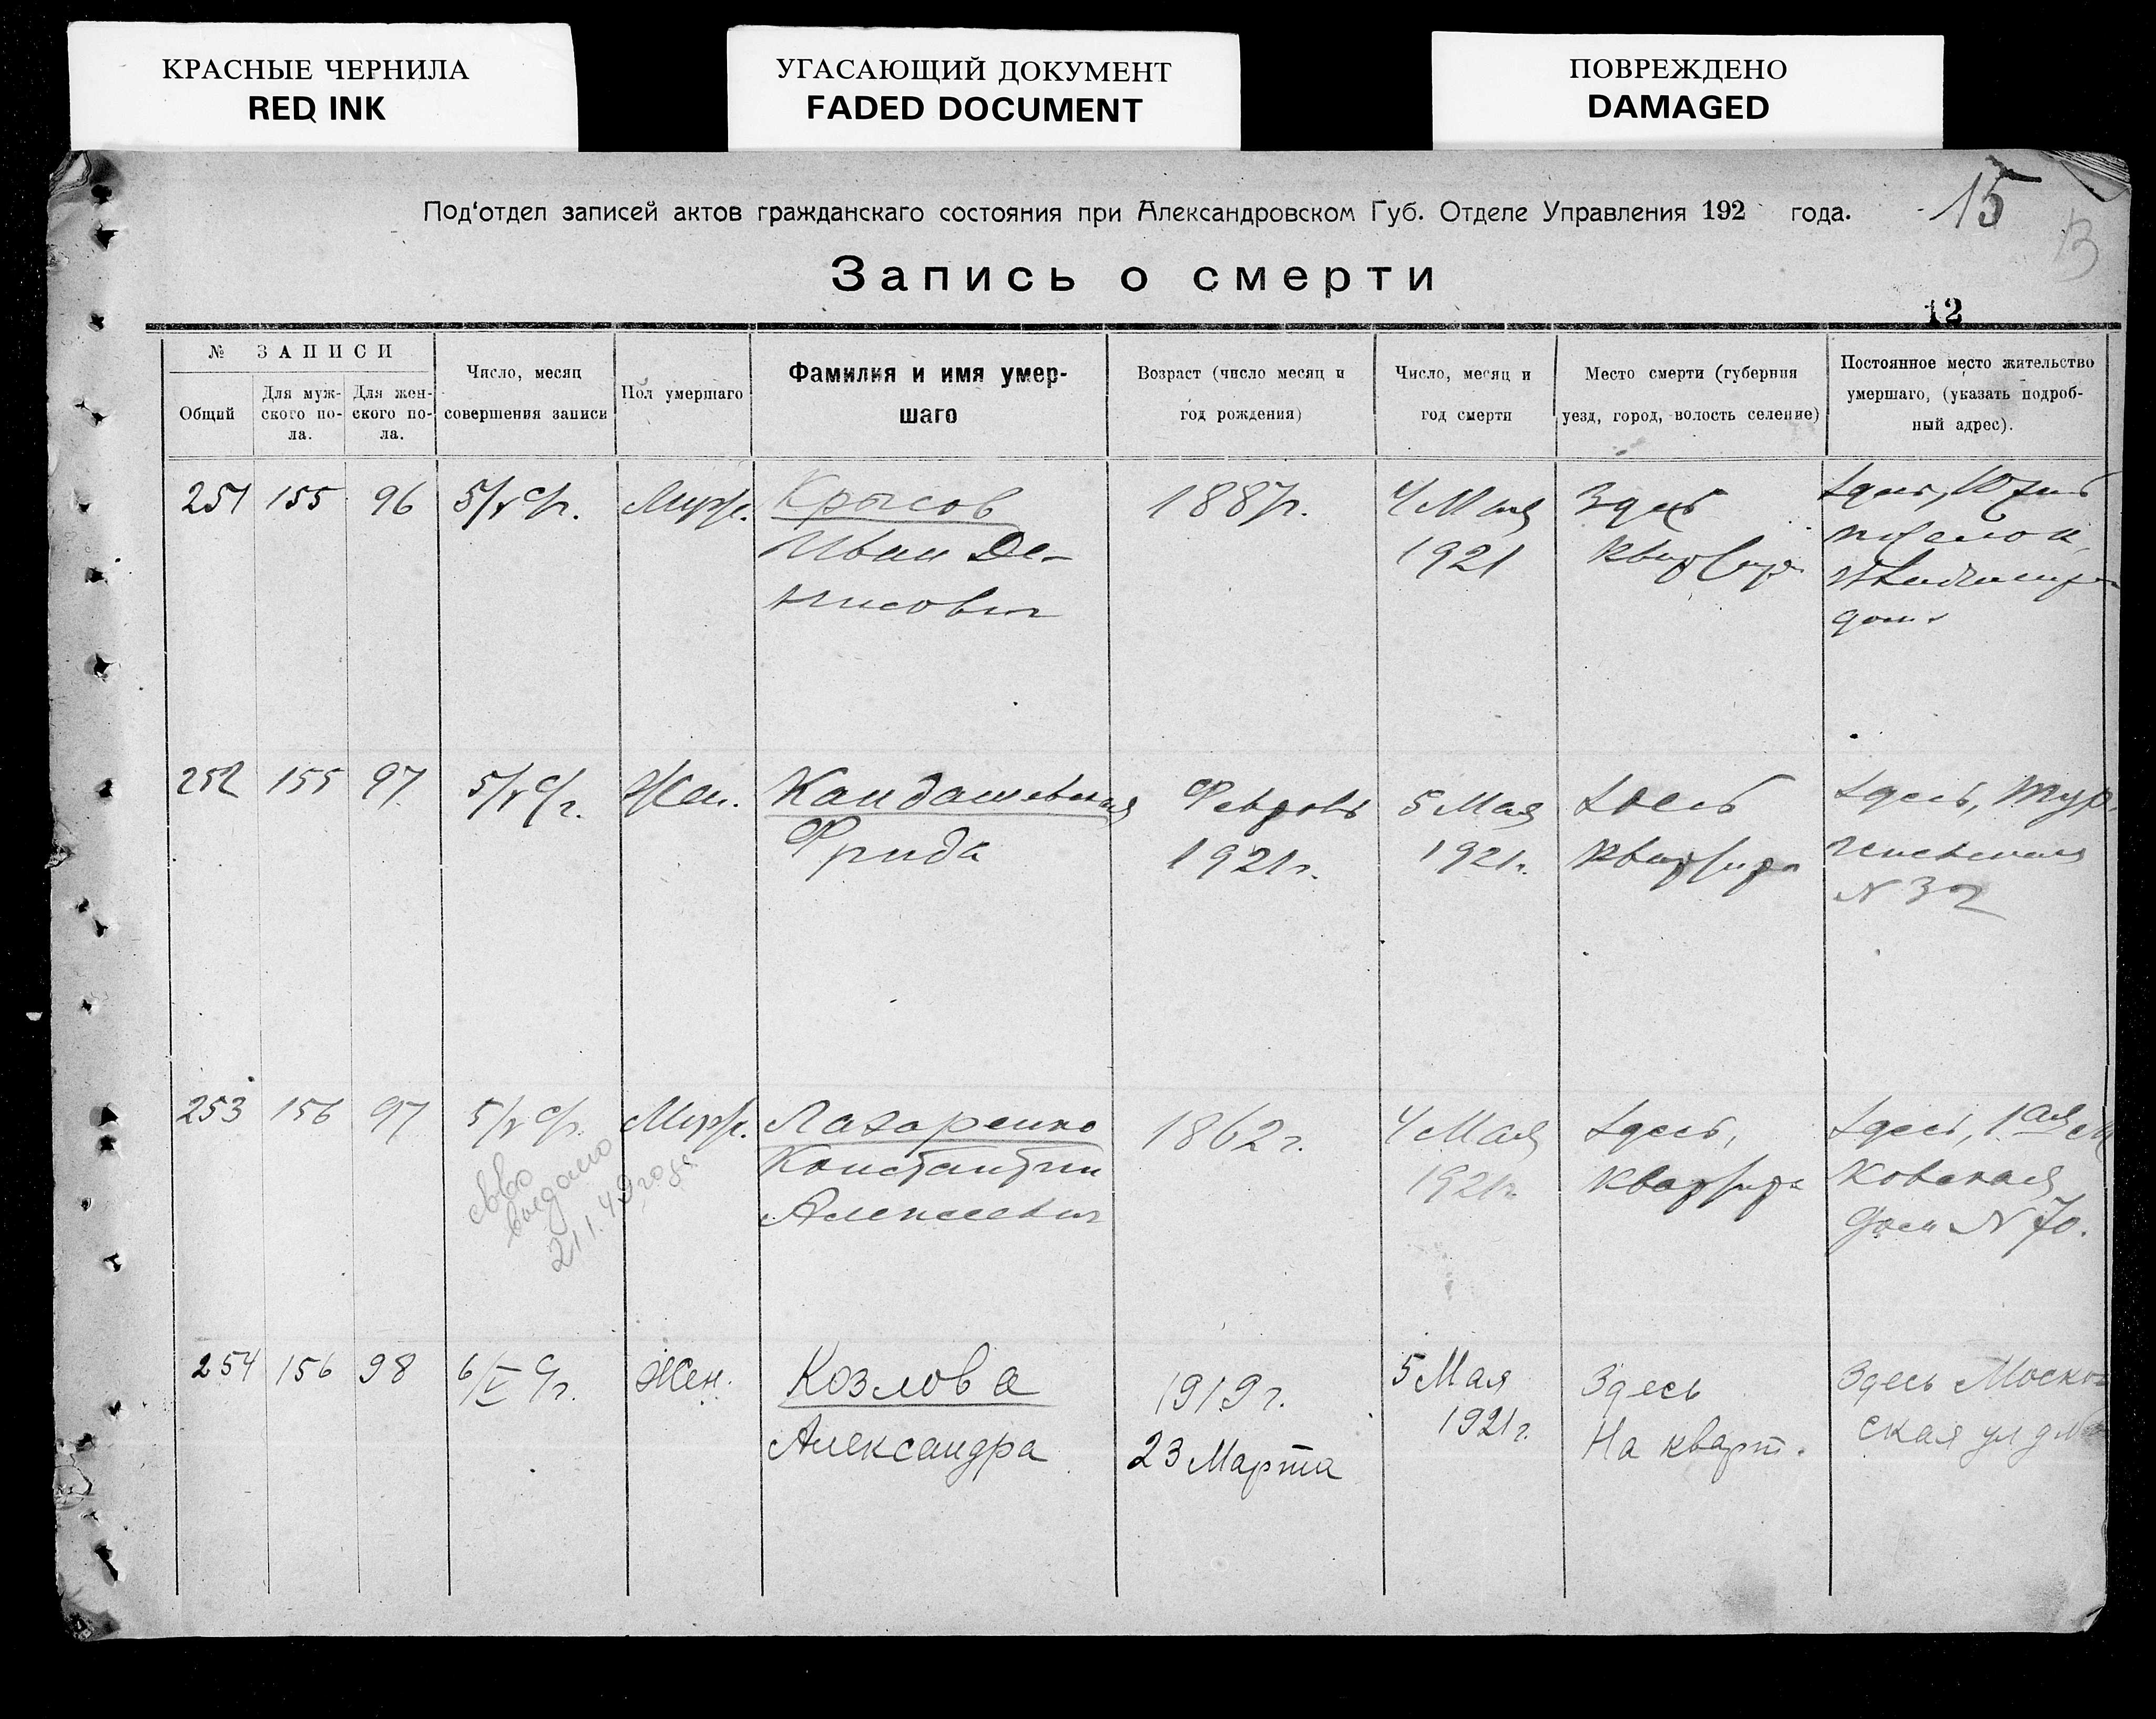 КРАСНЫЕ ЧЕРНИЛА
RED INK
УГАСАЮЩИЙ ДОКУМЕНТ
FADED DOCUMENT
ПОВРЕЖДЕНО
DAMAGED
15
13
Под‘отдел записей актов гражданскаго состояния при Александровском Губ. Отделе Управления 192 года.
Запись о смерти
12
№ ЗАПИСИ
Общий
Для муж-
ского по-
ла.
Для жен-
ского по-
ла.
Число, месяц
совершения записи
Пол умершаго
Фамилия и имя умер-
шаго
Возраст (число месяц и
год рождения)
Число, месяц и
год смерти
Место смерти (губерния
уезд, город, волость селение)
Постоянное место жительство
умершаго, (указать подроб-
ный адрес).
251 155 96 5/V с/г. Муж.
Крысов
Иван Де-
нисович
1887г.
4 Мая
1921
Здесь
квартира
Здесь, Южн
поселок
дом
252 155 97 5/V с/г. Жен.
Кандашевская
Фрида
Февраль
1921г.
5 Мая
1921г.
Здесь
квартира
Здесь, Тур.
геневская
N 32
253 156 97 5/V с/г. Муж.
св-во
выдано
21 1. 49 года
Лазаренко
Константин
Алексеевич
1862г.
4 Мая
1921г.
Здесь,
квартира
Здесь, 1ая М
ковская
дом N 70.
254 156 98 6/V С/г. Жен.
Козлова
Александра
1919 г.
23 Марта
5 Мая
1921г.
Здесь
На кварт.
Здесь Москов
ская ул д №